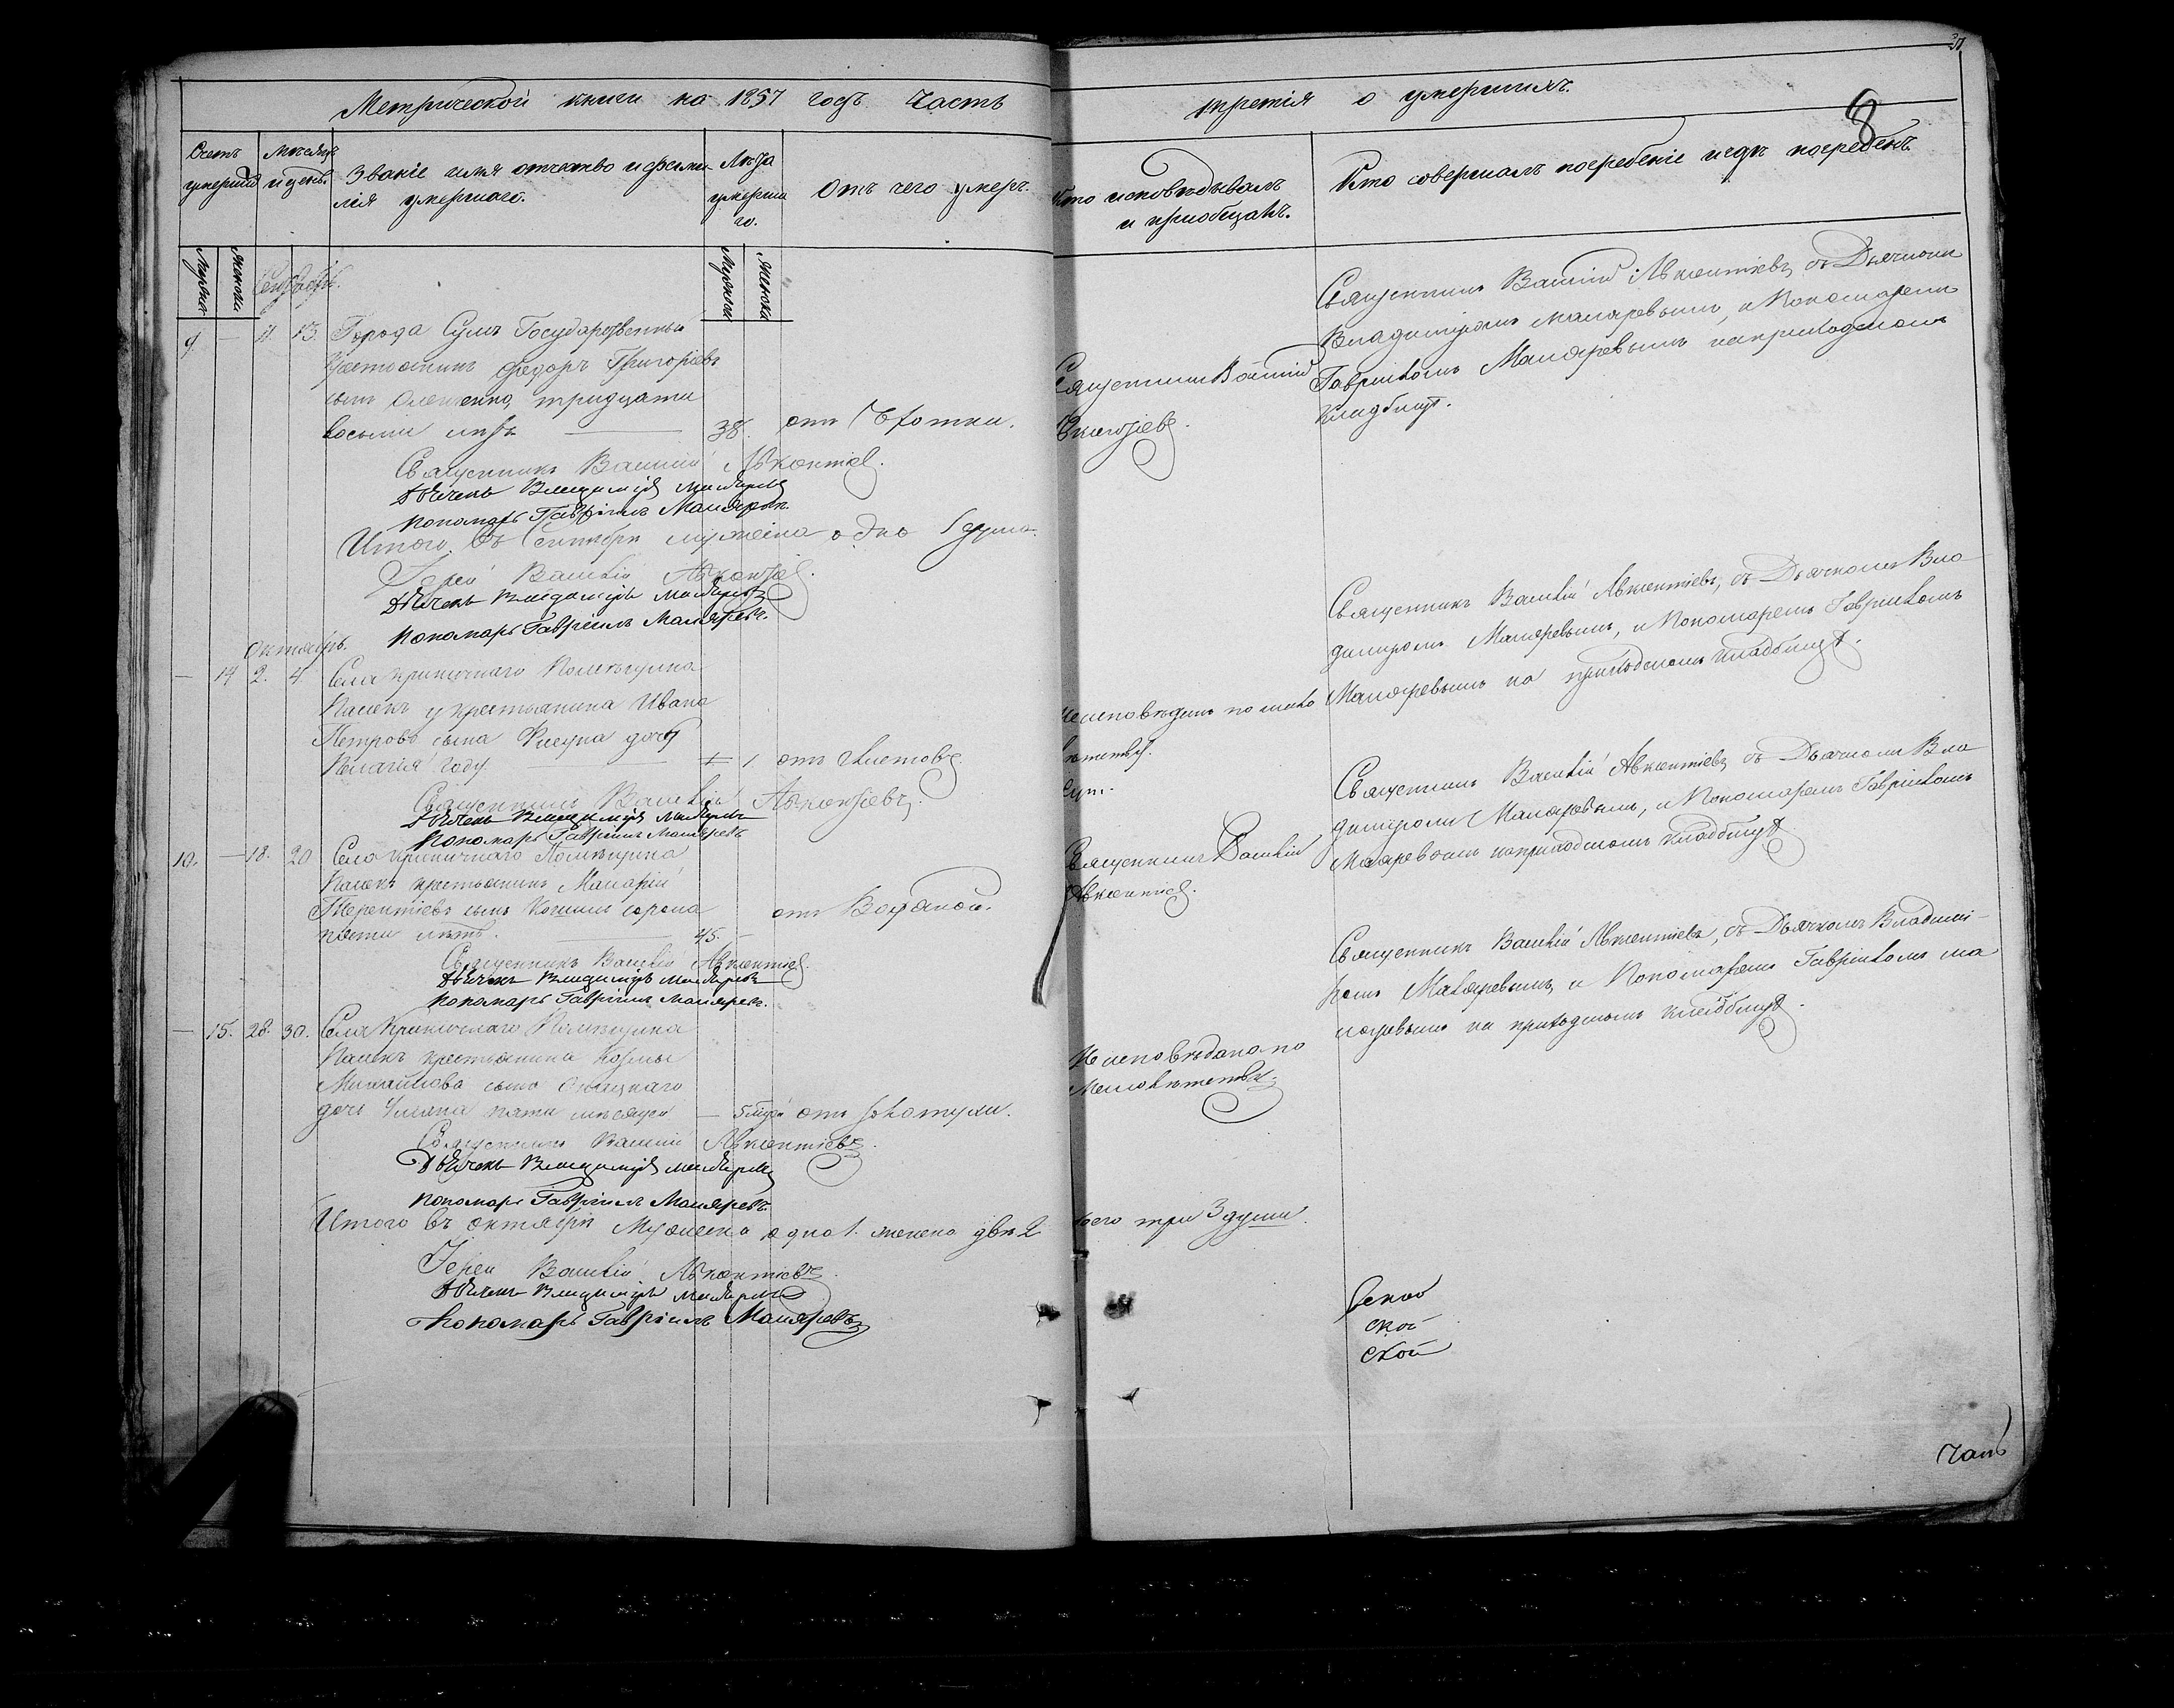 Метрической книги на 1857 годъ Часть
третія о умершихъ.
8
Счетъ умершихъ
Мѣсяцъ и день.
Званіе имя отчество и фами-
лія умершаго.
Лѣта
умерша
го.
Отъ чего умеръ.
Кто исповѣдывалъ
и пріобщалъ.
Кто совершалъ погребеніе и гдѣ погребенъ
Мужска
Женска
Мужска
Женска
Сентябрь.
9. — 11. 13. Города Сумъ Государственный
крестьянинъ Федоръ Григорьевъ
сынъ тридцати
восьми лѣтъ — 38. отъ Чахотки.
Священникъ Василій
Авксентіевъ.
Священникъ Василій Авксентіевъ, съ Дьячкомъ
Владиміромъ Маляревымъ, и Пономаремъ
Гавріиломъ Маляревымъ на приходскомъ
кладбищѣ.
Священникъ Василій Авксентіевъ.
Дьячекъ Владиміръ Маляревъ
Пономарь Гавріилъ Маляревъ.
Итого въ Сентябрѣ мужеска одна 1 душа.
Іерей Василій Авксентіевъ.
Дьячекъ Владиміръ Маляревъ
Пономарь Гавріилъ Маляревъ.
Октябрь.
— 14 2. 4. Села Криничнаго Помѣщика
Палекъ у крестьянина Ивана
Петрова сына дочь
Пелагія году — 1 отъ
Не исповѣдана по мало
лѣтству.
Священникъ Василій Авксентіевъ, съ Дьячкомъ Вла-
диміромъ Маляревымъ, и Пономаремъ Гавріиломъ
Маляревымъ на приходскомъ кладбищѣ.
Священникъ Василій Авксентіевъ.
Дьячекъ Владиміръ Маляревъ
Пономарь Гавріилъ Маляревъ
10. — 18. 20 Села Криничнаго Помѣщика
Палекъ крестьянинъ Макарій
Терентіевъ сынъ сорока
пяти лѣтъ. — 45. — отъ Водяной.
Священникъ Василій
Авксентіевъ.
Священникъ Василій Авксентіевъ, съ Дьячкомъ Вла
диміромъ Маляревымъ, и Пономаремъ Гавріиломъ
Маляревымъ на приходскомъ кладбищѣ.
Священникъ Василій Авксентіевъ.
Дьячекъ Владиміръ Маляревъ
Пономарь Гавріилъ Маляревъ.
— 15. 28. 30. Села Криничнаго Помѣщика
Палекъ крестьянина Козмы
Михайлова сына
дочь Уліяна пяти мѣсяцей — 5 отъ
Не исповѣдана по
малолѣтству.
Священникъ Василій Авксентіевъ, съ Дьячкомъ Владимі-
ромъ Маляревымъ, и Пономаремъ Гавріиломъ Ма
ляревымъ на приходскомъ кладбищѣ.
Священникъ Василій Авксентіевъ.
Дьячекъ Владиміръ Маляревъ
Пономарь Гавріилъ Маляревъ.
Итого въ октябрѣ Мужеска одна 1. женска двѣ 2
всего три 3 души.
Іерей Василій Авксентіевъ.
Дьячекъ Владиміръ Маляревъ
Пономарь Гавріилъ Маляревъ
ской
ской
Часть